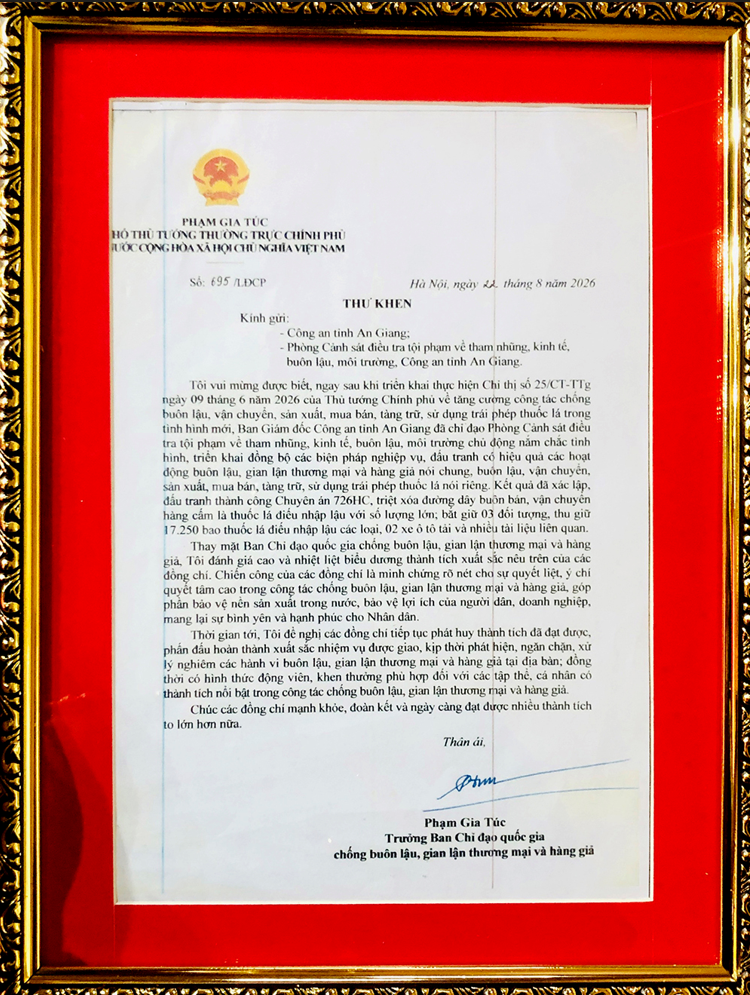 PHẠM GIA TÚC
HÓ THỦ TƯỚNG THƯỜNG TRỰC CHÍNH PHỦ
ƯỚC CỘNG HÒA XÃ HỘI CHỦ NGHĨA VIỆT NAM
Số: 695 /LĐCP
Hà Nội, ngày 22 tháng 8 năm 2026
THƯ KHEN
Kính gửi:
- Công an tỉnh An Giang;
- Phòng Cảnh sát điều tra tội phạm về tham nhũng, kinh tế,
buôn lậu, môi trường, Công an tỉnh An Giang.
Tôi vui mừng được biết, ngay sau khi triển khai thực hiện Chỉ thị số 25/CT-TTg
ngày 09 tháng 6 năm 2026 của Thủ tướng Chính phủ về tăng cường công tác chống
buôn lậu, vận chuyển, sản xuất, mua bán, tàng trữ, sử dụng trái phép thuốc lá trong
tình hình mới, Ban Giám đốc Công an tỉnh An Giang đã chỉ đạo Phòng Cảnh sát điều
tra tội phạm về tham nhũng, kinh tế, buôn lậu, môi trường chủ động nắm chắc tình
hình, triển khai đồng bộ các biện pháp nghiệp vụ, đấu tranh có hiệu quả các hoạt
động buôn lậu, gian lận thương mại và hàng giả nói chung, buôn lậu, vận chuyển,
sản xuất, mua bán, tàng trữ, sử dụng trái phép thuốc lá nói riêng. Kết quả đã xác lập,
đấu tranh thành công Chuyên án 726HC, triệt xóa đường dây buôn bán, vận chuyển
hàng cấm là thuốc lá điếu nhập lậu với số lượng lớn; bắt giữ 03 đối tượng, thu giữ
17.250 bao thuốc lá điếu nhập lậu các loại, 02 xe ô tô tải và nhiều tài liệu liên quan.
Thay mặt Ban Chỉ đạo quốc gia chống buôn lậu, gian lận thương mại và hàng
giả, Tôi đánh giá cao và nhiệt liệt biểu dương thành tích xuất sắc nêu trên của các
đồng chí. Chiến công của các đồng chí là minh chứng rõ nét cho sự quyết liệt, ý chí
quyết tâm cao trong công tác chống buôn lậu, gian lận thương mại và hàng giả, góp
phần bảo vệ nền sản xuất trong nước, bảo vệ lợi ích của người dân, doanh nghiệp,
mang lại sự bình yên và hạnh phúc cho Nhân dân.
Thời gian tới, Tôi đề nghị các đồng chí tiếp tục phát huy thành tích đã đạt được,
phấn đấu hoàn thành xuất sắc nhiệm vụ được giao, kịp thời phát hiện, ngăn chặn, xử
lý nghiêm các hành vi buôn lậu, gian lận thương mại và hàng giả tại địa bàn; đồng
thời có hình thức động viên, khen thưởng phù hợp đối với các tập thể, cá nhân có
thành tích nổi bật trong công tác chống buôn lậu, gian lận thương mại và hàng giả.
Chúc các đồng chí mạnh khỏe, đoàn kết và ngày càng đạt được nhiều thành tích
to lớn hơn nữa.
Thân ái,
Phạm Gia Túc
Trưởng Ban Chỉ đạo quốc gia
chống buôn lậu, gian lận thương mại và hàng giả